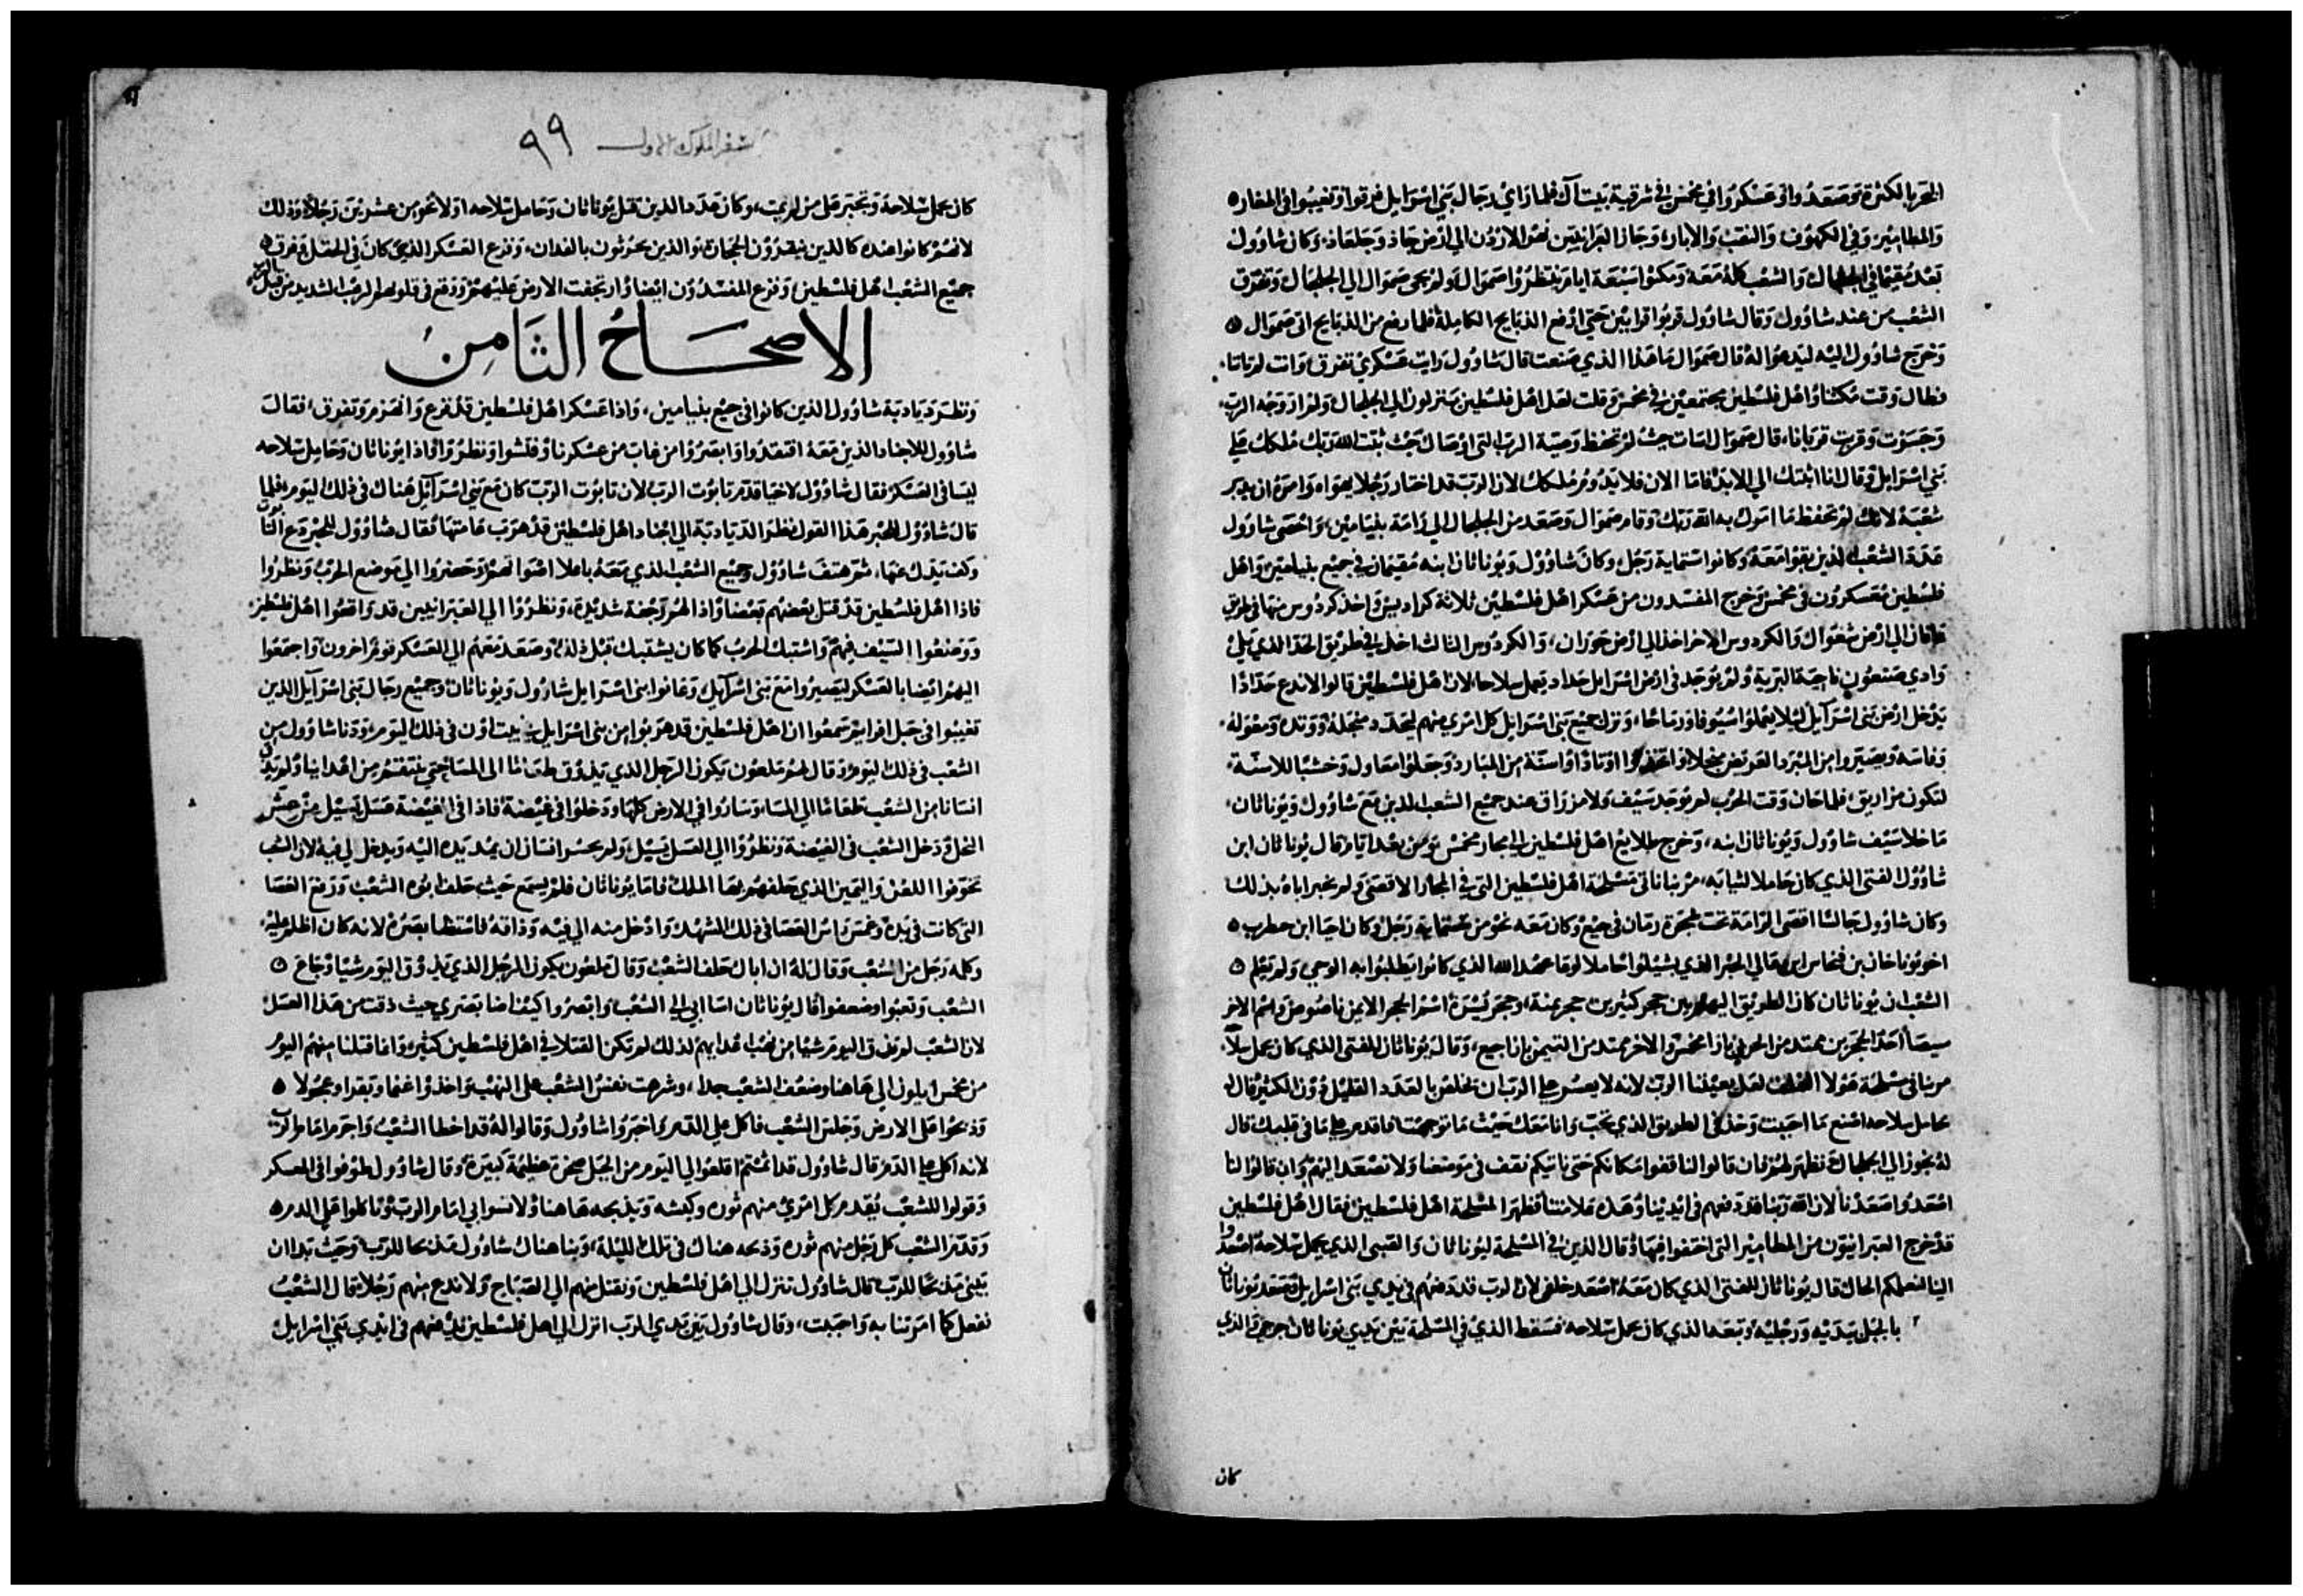 البحر بالكثرة وصعدوا وعسكروا في مخمس في شرقية بيت آل فلما راي رجال بني اسرايل فرقوا وتغيبوا في المغار
والمطامير وفي الكهوف والنقب والابار وجاز العبرانيين نهر الاردن الي ارض جاد وجلعاد وكان شاوول
بعد مقيما في الجلجال والشعب كله معه ومكثوا سبعة ايام ينتظروا صموال ولم يجي صموال الي الجلجال وتفرق
الشعب من عند شاوول وقال شاوول قربوا قرابين حتي ارفع الذبايح الكاملة فلما رفع من الذبايح اتي صموال
وخرج شاوول اليه ليدعوا له قال صموال ما هذا الذي صنعت قال شاوول رايت عسكري تفرق وانت لم تاتنا
فطال وقت مكثنا واهل فلسطين مجتمعين في مخمس وقلت لعل اهل فلسطين ينزلون الي الجلجال ولم از وجه الرب
وجسرت وقربت قربانا قال صموال اسات حيث لم تحفظ وصية الرب التي اوصاك حيث ثبت الله ربك ملكك علي
بني اسرايل وقال انا اثبتك الي الابد فاما الان فلا يدوم ملكك لان الرب قد اختار رجلا يهواه وامره ان يدبر
شعبه لانك لم تحفظ ما امرك به الله ربك وقام صموال وصعد من الجلجال الي رامة بنيامين واحصي شاوول
عدة الشعب الذين بقوا معه وكانوا ستماية رجل وكان شاوول ويوناثان ابنه مقيمان في جميع بنيامين واهل
فلسطين معسكرون في مخمس وخرج المفسدون من عسكر اهل فلسطين ثلاثة كراديس واخذ كردوس منها في طريق
الي ارض شغوال والكردوس الاخر اخذ الي ارض حوران والكردوس الثالث اخذ في طريق الحد الذي يلي
وادي صنعون ناحية البرية ولم يوجد في ارض اسرايل حداد يعمل سلاحا لان اهل فلسطين قالوا لا ندع حدادا
يدخل ارض بني اسرآيل ليلا يعملوا سيوفا ورماحا ونزل جميع بني اسرايل كل امري منهم ليحدد منجله ووتده ومعوله
وفاسه ويصيروا من المبرد العريض منجلا واتخذوا اوتادا واسنة من المبارد وجعلوا معاول وخشبا للاسنة
لتكون مزاريق فلما حان وقت الحرب لم يوجد سيف ولا مزراق عند جميع الشعب الذين مع شاوول ويوناثان
ما خلا سيف شاوول ويوناثان ابنه وخرج طلايع اهل فلسطين الي مجاز مخمس ومن بعد ايام قال يوناثان ابن
شاوول لفتي الذي كان حاملا لثيابه مر بنا ناتي مسلحة اهل فلسطين التي في المجاز الاقصي ولم يخبر اباه بذلك
وكان شاوول جالسا اقصي الرامة تحت شجرة رمان في جبع وكان معه نحو من ستماية رجل وكان احيا ابن حطرب
اخو يوناخان بن فنحاس ابن عالي الحبر الذي بشيلوا حاملا لوقا عهد الله الذي كانوا يطلبوا به الوحي ولم يعلم
الشعب ان يوناثان كان الطريق اليهم بين حجر كبيرين حجر يمنة وحجر يسرة اسم الحجر الايمن ناصوص واسم الاخر
سيصا احد الحجرين ممتد من الحربي بازا مخمس والاخر ممتد من التيمن بازا جبع وقال يوناثان للفتي الذي كان يحمل سلاحه
مر بنا في مسلحة هولا الغلف لعل يعيننا الرب لانه لا يعسر علي الرب ان يخلص بالعدد القليل دون الكثير قال
حامل سلاحه اصنع ما احببت وخذ في الطريق الذي تحب وانا معك حيث ما توجهت فاقدم علي ما في قلبك قال
له نجوز الي الجلجال ونظهر لهم فان قالوا لنا قفوا مكانكم حتي ناتيكم نقف في موضعنا ولا نصعد اليهم وان قالوا لنا
اصعدوا صعدنا لان الله ربنا قد دفعهم في ايدينا وهذه علامتنا فظهرا لمسلحة اهل فلسطين فقال اهل فلسطين
قد خرج العبرانيون من المطامير التي اختفوا فيها وقال الذين في المسلحة ليوناثان والصبي الذي يحمل سلاحه اصعدوا
الينا لنعلمكم الحال قال يوناثان للفتي الذي كان معه اصعد خلفي لان الرب قد دفعهم في يدي بني اسرايل فصعد يوناثان
بالجبل بيديه ورجليه وتبعه الذي كان يحمل سلاحه فسقط الذي في المسلحة بين يدي يوناثان جرحي والذي
كان
سفر الملوك الاول ٩٩
كان يحمل سلاحه وكان هذا الذين قتل يوناثان وحامل سلاحه اولا نحو من عشرين رجلا وذلك
لانهم كانوا عنده كالذين ينقرون الحجارة والذين يحرثون بالفدان وفزع العسكر الذي كان في الحقل وفرق
جميع الشعب اهل فلسطين وفزع المفسدون ايضا وارتجفت الارض عليهم ووقع في قلوبهم الرعب الشديد من قبل الرب
الاصحاح الثامن
ونظر ديادبة شاوول الذين كانوا في جبع بنيامين واذا عسكر اهل فلسطين قد فزع وانهزم وتفرق فقال
شاوول للاجناد الذين معه افتقدوا وابصروا من غاب من عسكرنا وفتشوا ونظروا واذا يوناثان وحامل سلاحه
ليسا في العسكر فقال شاوول لاحيا قدم تابوت الرب لان تابوت الرب كان مع بني اسرآيل هناك في ذلك اليوم فلما
قال شاوول للحبر هذا القول نظر الديادبة الي اجناد اهل فلسطين قد هرب عامتها فقال شاوول للحبر دع التابوت
وكف يدك عنها ثم هتف شاوول وجميع الشعب الذي معه باعلا اصواتهم وحضروا الي موضع الحرب ونظروا
فاذا اهل فلسطين قد قتل بعضهم بعضا واذا لهم رجفة شديدة ونظروا الي العبرانيين قد واقعوا اهل فلسطين
ووضعوا السيف فيهم واشتبك الحرب كما كان يشتبك قبل ذلك وصعد معهم الي العسكر قوم اخرون واجمعوا
اليهم ايضا بالعسكر ليصيروا مع بني اسرآيل وعانوا بني اسرايل شاوول ويوناثان وجميع رجال بني اسرآيل الذين
تغيبوا في جبل افرايم سمعوا ان اهل فلسطين قد هربوا من بني اسرايل في بيت اون في ذلك اليوم ودنا شاوول من
الشعب في ذلك اليوم وقال لهم ملعون يكون الرجل الذي يذوق طعاما الي المسا حتي ننتقم من اعداينا ولم يذق
انسانا من الشعب طعاما الي المسا وساروا في الارض كلها ودخلوا في غيضة فاذا في الغيضة عسل يسيل من عش
النحل ودخل الشعب في الغيضة ونظروا الي العسل يسيل ولم يجسر انسان ان يمد يده اليه ويدخل الي فيه لان الشعب
تخوفوا اللعن واليمين الذي حلفهم بها الملك فاما يوناثان فلم يسمع حيث حلف ابوه الشعب ورفع العصا
التي كانت في يده وغمس راس العصا في ذلك الشهد وادخل منه الي فيه وذاقه فاستضا بصره لانه كان اظلم عليه
وكلمه رجل من الشعب وقال له ان اباك حلف الشعب وقال ملعون يكون الرجل الذي يذوق اليوم شيا وجاع
الشعب وتعبوا وضعفوا قال يوناثان اسا ابي الي الشعب وابصروا كيف اضا بصري حيث ذقت من هذا العسل
لان الشعب لم يذق اليوم شيا من نهب اعدايهم لذلك لم تكن القتلا في اهل فلسطين كثيرة وانما قتلنا منهم اليوم
من مخمس ايلون الي هاهنا وضعف الشعب جدا وشرهت نفس الشعب علي النهب واخذوا غنما وبقرا وعجولا
وذبحوا علي الارض وجلس الشعب فاكل علي الدم واخبروا شاوول وقالوا له قد اخطا الشعب واجرم امام الرب
لانه اكل علي الدم قال شاوول قد اثمتم اقلعوا لي اليوم من الجبل صخرة عظيمة كبيرة وقال شاوول طوفوا في العسكر
وقولوا للشعب يقدم كل امري منهم ثوره وكبشه وتذبحه هاهنا ولا تسوا بي امام الرب وتاكلوا علي الدم
وقدم الشعب كل رجل منهم ثوره وذبحه هناك في تلك الليلة وبنا هناك شاوول مذبحا للرب وحيث بدا ان
يبني مذبحا للرب قال شاوول ننزل الي اهل فلسطين ونقتل منهم الي الصباح ولا ندع منهم رجلا قال الشعب
نفعل كما امرتنا به واحببت وقال شاوول بين يدي الرب انزل الي اهل فلسطين تدفعهم في ايدي بني اسرايل